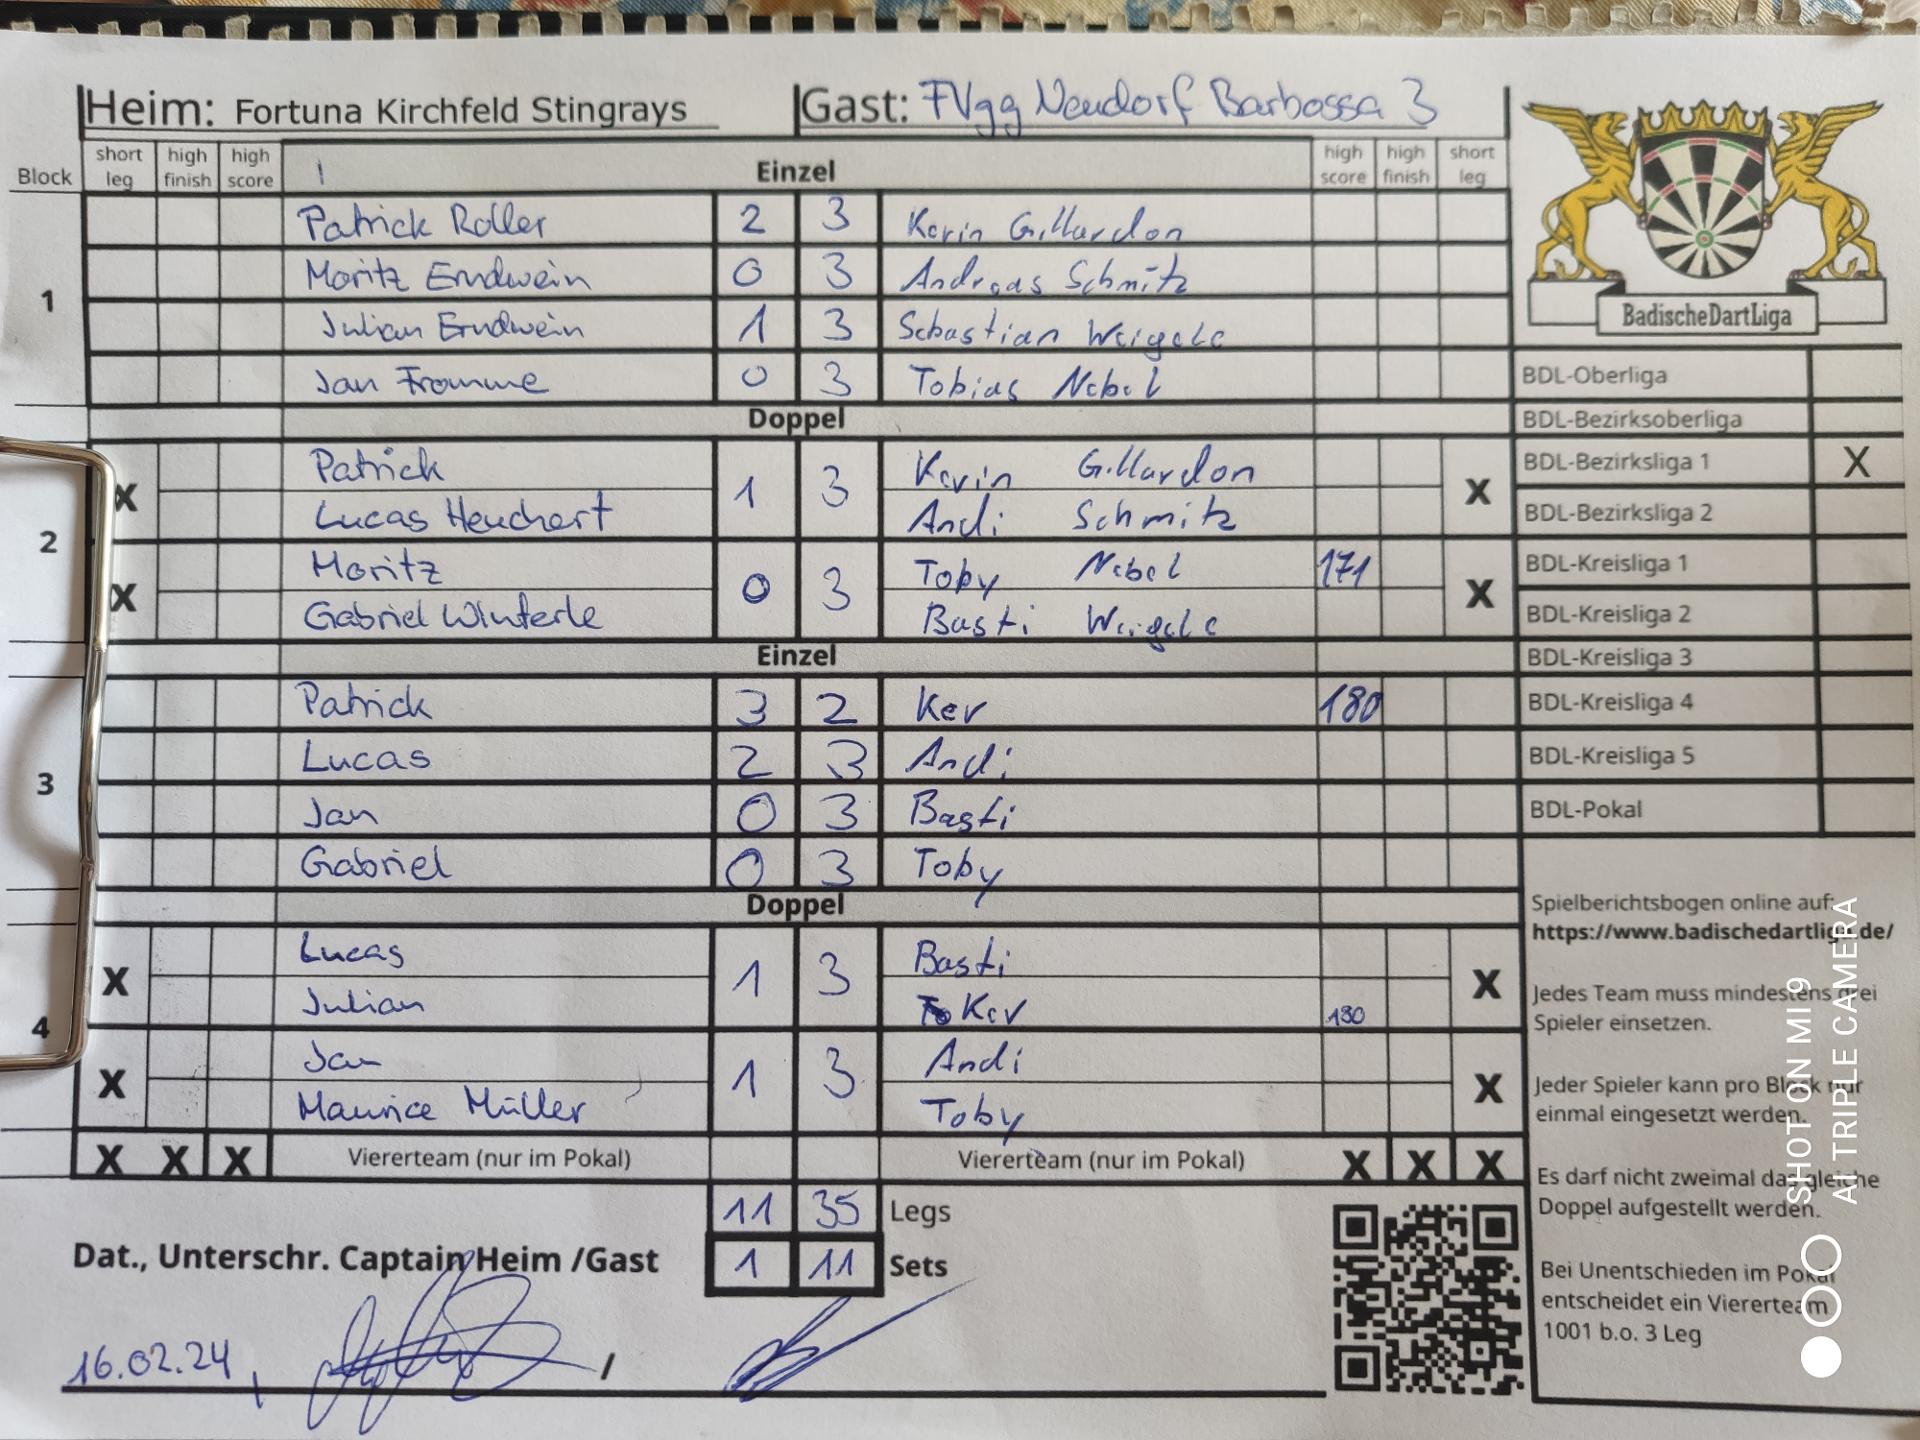 Heim: Fortuna Kirchfeld Stingrays Gast: FVgg Neudorf Barbossa 3
Block short leg high finish high score Einzel high score high finish short leg
1
Patrick Roller 2 3 Kevin Gillardon
Moritz Erndwein 0 3 Andreas Schmitz
Julian Erndwein 1 3 Sebastian Weigele
Jan Fromme 0 3 Tobias Nebel
Doppel
2
X Patrick 1 3 Kevin Gillardon X
Lucas Heuchert Andi Schmitz
X Moritz 0 3 Toby Nebel 171 X
Gabriel Winterle Basti Weigele
Einzel
3
Patrick 3 2 Kev 180
Lucas 2 3 Andi
Jan 0 3 Basti
Gabriel 0 3 Toby
Doppel
4
X Lucas 1 3 Basti X
Julian Kev 180
X Jan 1 3 Andi X
Maurice Müller Toby
X X X Viererteam (nur im Pokal) Viererteam (nur im Pokal) X X X
11 35 Legs
1 11 Sets
Dat., Unterschr. Captain Heim /Gast
16.02.24, /
BadischeDartLiga
BDL-Oberliga
BDL-Bezirksoberliga
BDL-Bezirksliga 1 X
BDL-Bezirksliga 2
BDL-Kreisliga 1
BDL-Kreisliga 2
BDL-Kreisliga 3
BDL-Kreisliga 4
BDL-Kreisliga 5
BDL-Pokal
Spielberichtsbogen online auf:
https://www.badischedartliga.de/
Jedes Team muss mindestens drei
Spieler einsetzen.
Jeder Spieler kann pro Block nur
einmal eingesetzt werden.
Es darf nicht zweimal das gleiche
Doppel aufgestellt werden.
Bei Unentschieden im Pokal
entscheidet ein Viererteam
1001 b.o. 3 Leg
SHOT ON MI 9
AI TRIPLE CAMERA